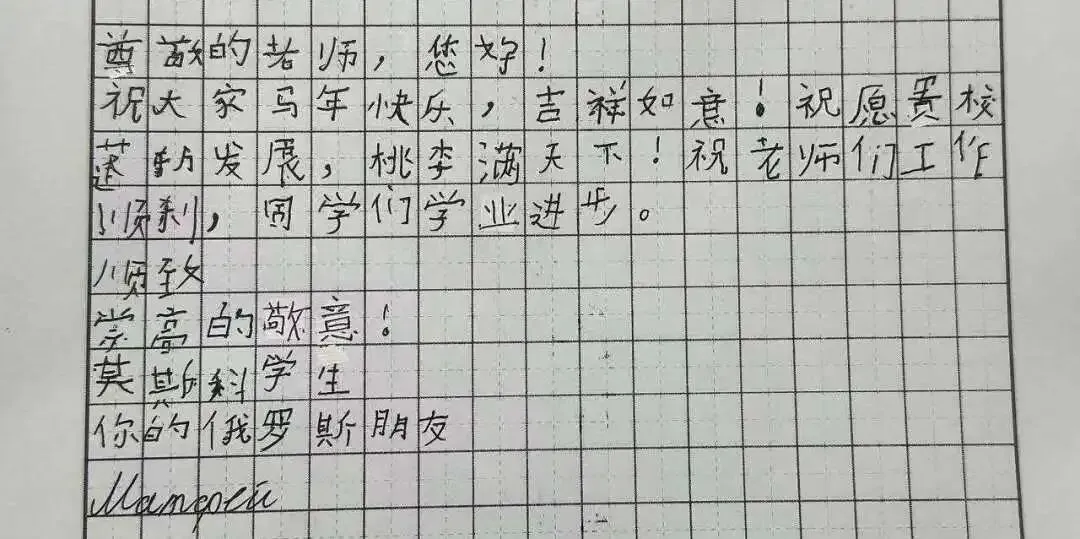 尊敬的老师，您好！
祝大家马年快乐，吉祥如意！祝愿贵校
蓬勃发展，桃李满天下！祝老师们工作
顺利，同学们学业进步。
顺致
崇高的敬意！
莫斯科学生
你的俄罗斯朋友
Матфей